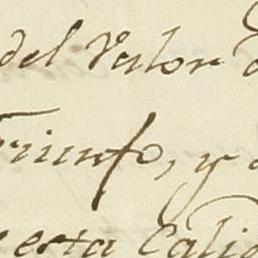 del Valor
Triunfo, y
esta Cali